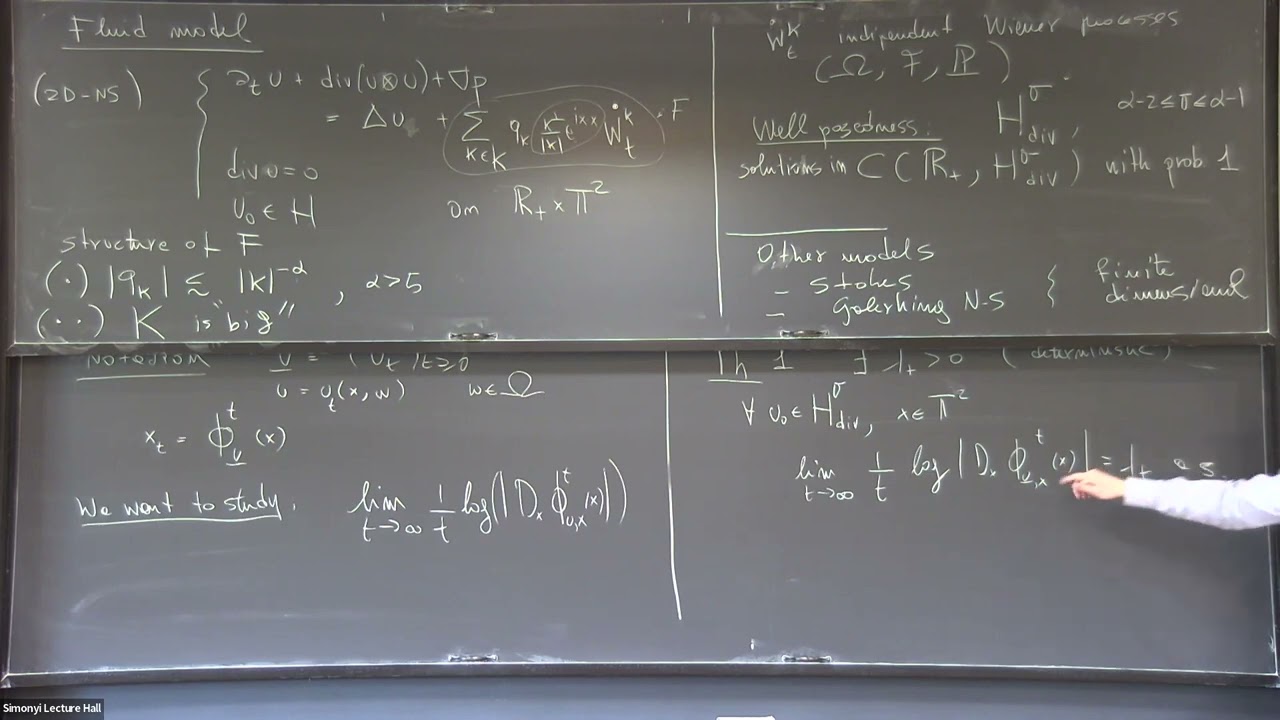 Fluid model
(2D-NS)
∂_t u + div(u⊗u) + ∇p
= Δu + Σ_{k∈K} q_k k^⊥/|k| e^{ix·k} Ẇ_t^k : F
div u = 0
u_0 ∈ H
on ℝ_+ × 𝕋^2
structure of F
(·) |q_k| ≲ |k|^{-α} , α>5
(··) K is "big"
Ẇ_t^k indipendent Wiener processes
(Ω, F, ℙ)
Well posedness: H^σ_div, α-2≤σ≤α-1
solutions in C(ℝ_+, H^σ_div) with prob. 1
Other models
- Stokes
- Galerking N-S
finite
dimensional
Notation u = (u_t)_{t≥0}
u = u_t(x, w) w∈Ω
x_t = ϕ_u^t (x)
We want to study: lim_{t→∞} 1/t log(|D_x ϕ^t_{u,x}(x)|)
Th 1 ∃ λ_+ > 0 (deterministic)
∀ u_0 ∈ H^σ_div, x∈𝕋^2
lim_{t→∞} 1/t log |D_x ϕ^t_{u,x}(x)| = λ_+ a.s.
Simonyi Lecture Hall